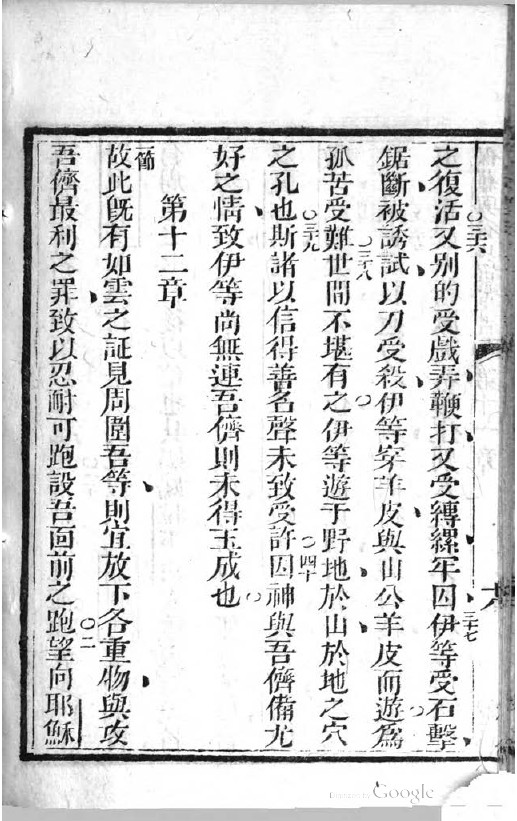 之復活○三十六又別的受戲弄鞭打又受縛縲牢囚○三十七伊等受石擊
鋸斷被誘試以刀受殺伊等穿羊皮與山公羊皮而遊為
孤苦受難○三十八世間不堪有之伊等遊于野地於山於地之穴
之孔也○三十九斯諸以信得善名聲未致受許○四十因神與吾儕備尤
好之情致伊等尚無連吾儕則未得玉成也
第十二章
一節故此旣有如雲之証見周圍吾等則宜放下各重物與攻
吾儕最利之罪致以忍耐可跑設吾面前之跑○二望向耶穌
Google